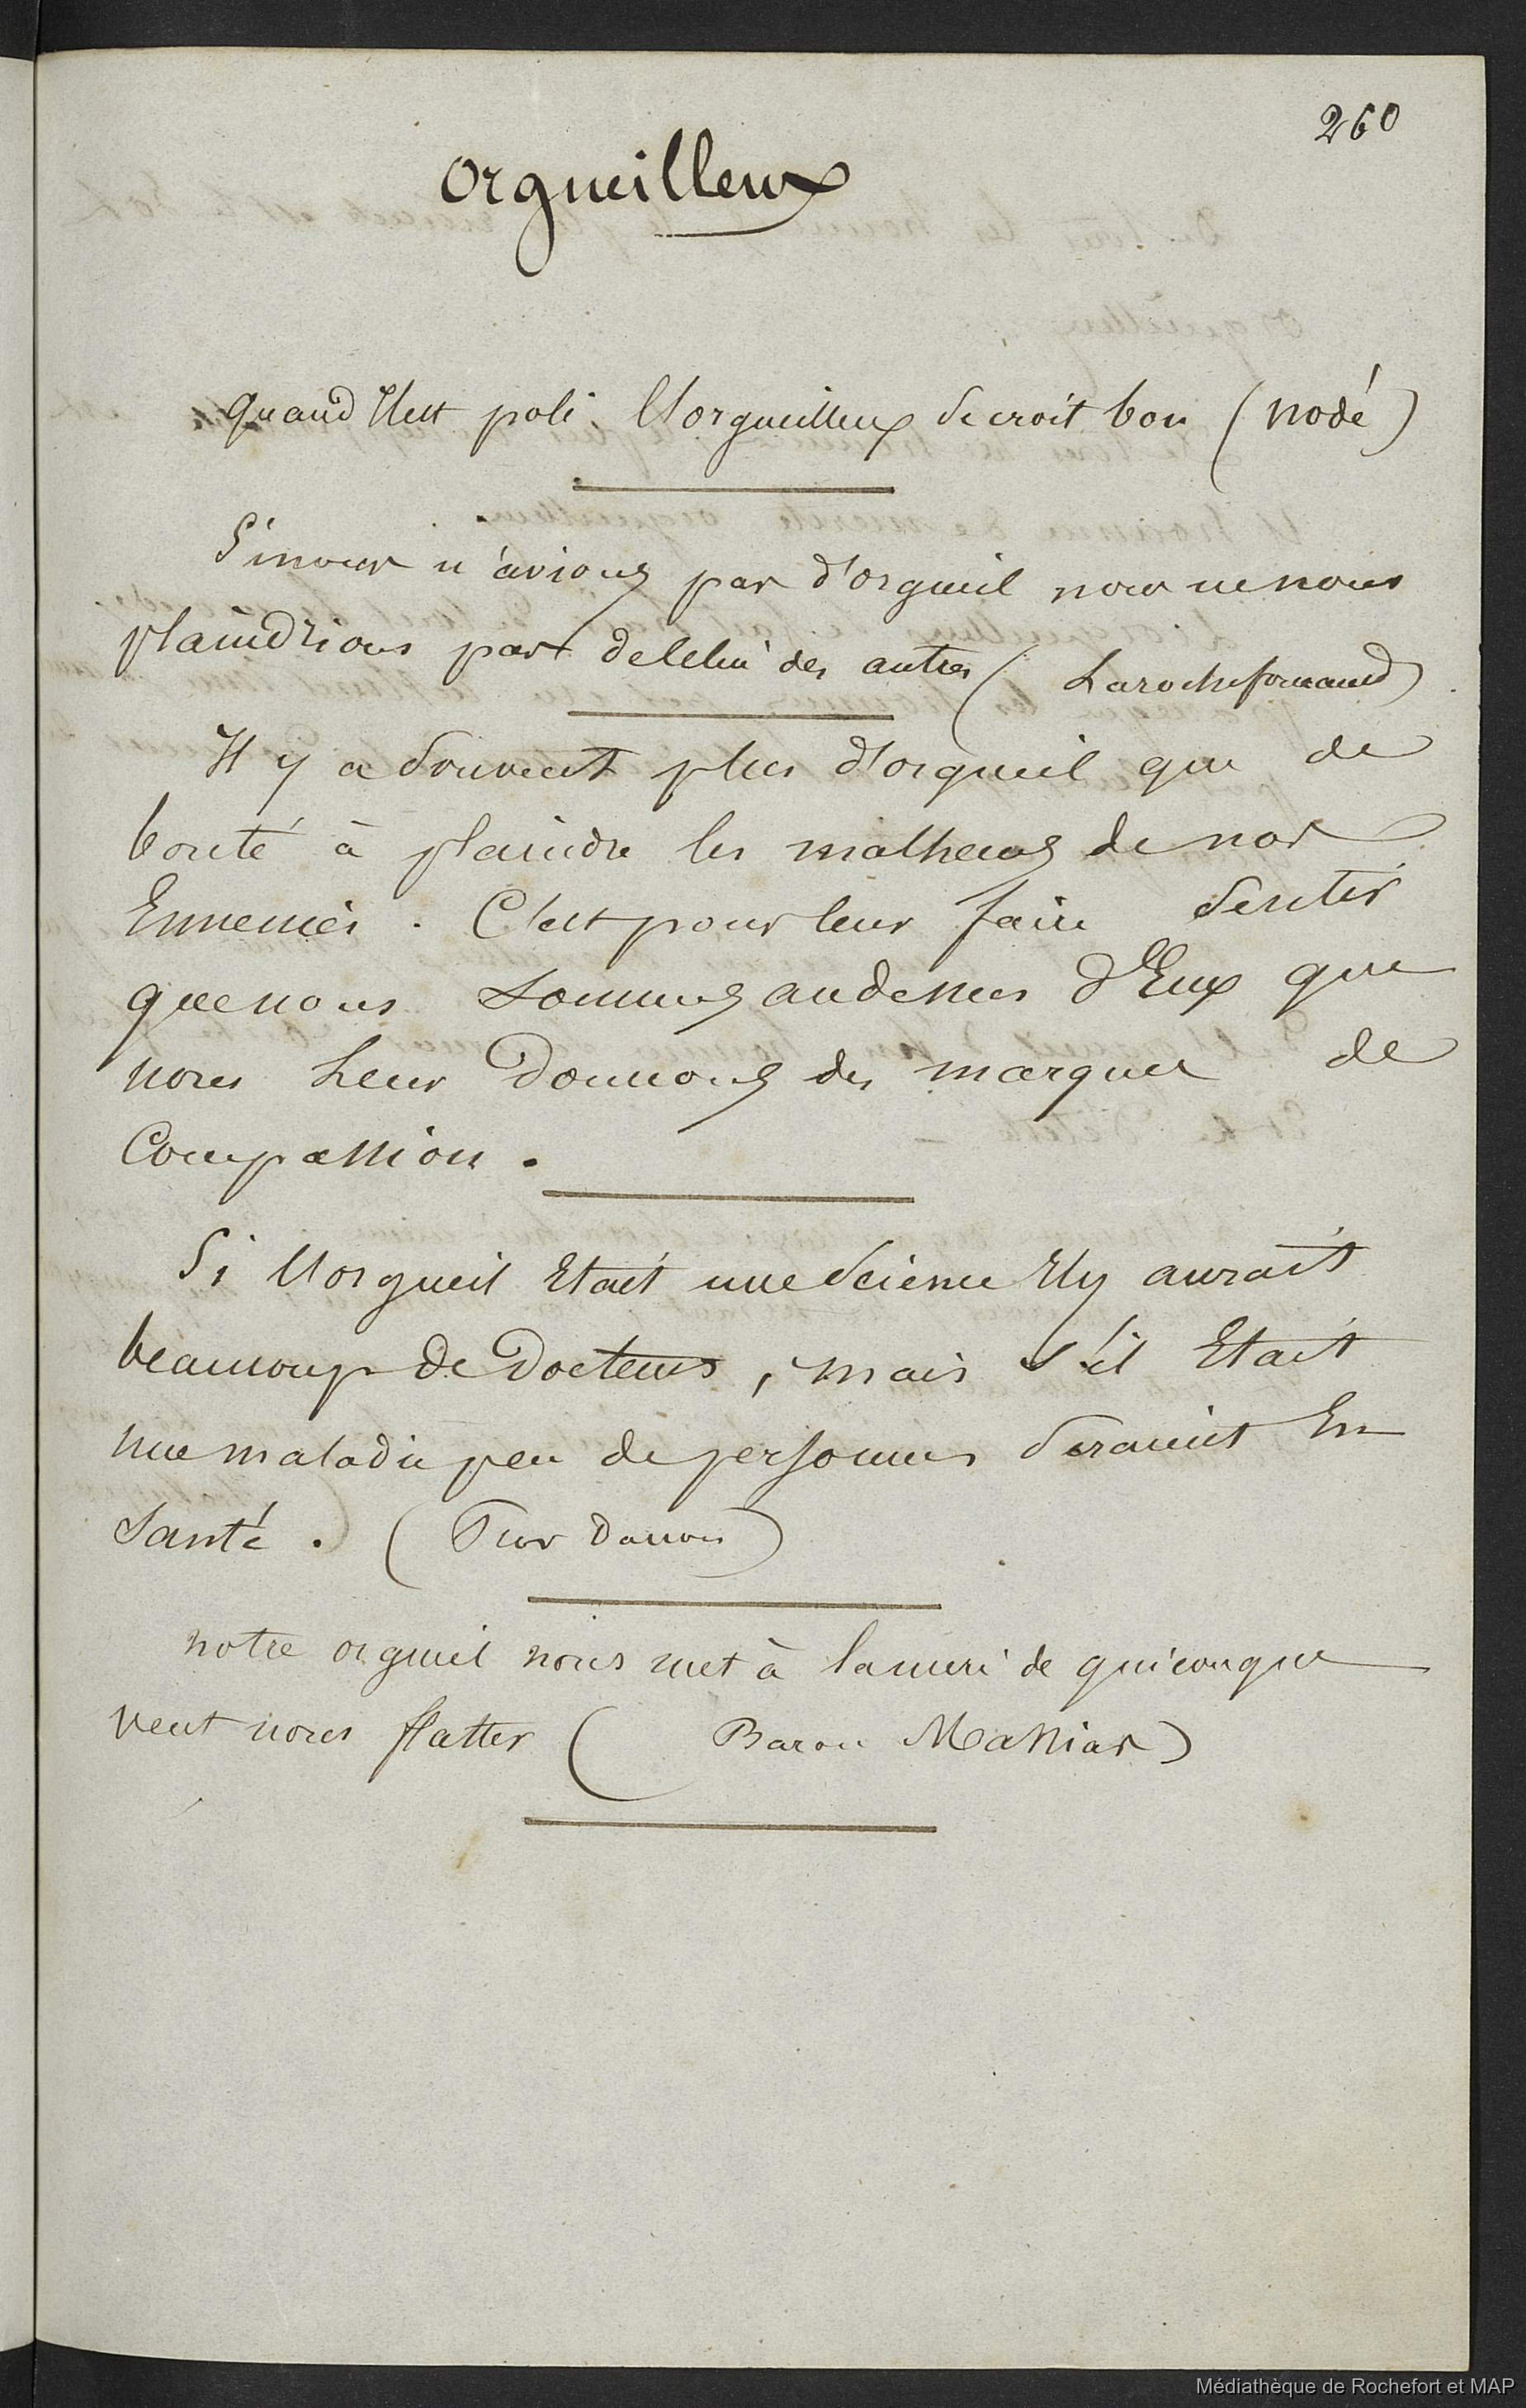 260
orgueilleux
quand Il est poli, l'orgueilleux se croit bon (nodé)
Si nous n'avions pas d'orgueil nous ne nous
plaindrions pas de celui des autres (Larochefoucaud)
Il y a souvent plus d'orgueil que de
bonté à plaindre les malheurs de nos
Ennemies. C'est pour leur faire sentir
que nous sommes audessus d'Eux que
nous Leur Donnons des marques de
Compassion.
Si l'orgueil Etait une science Il y aurait
beaucoup de Docteurs, mais s'il Etait
une maladie peu de personnes seraient En
santé. (
notre orgueil nous met à la merci de quiconque
veut nous flatter (Baron Massias)
Médiathèque de Rochefort et MAP